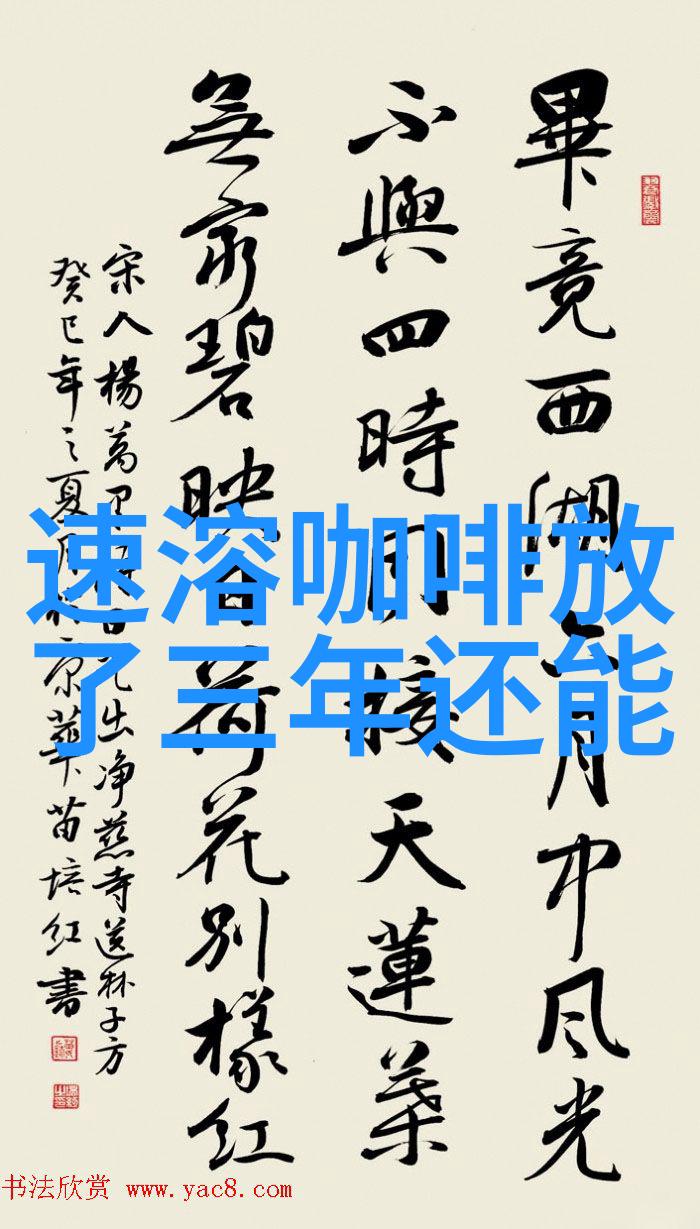 畢竟西湖六月中风光
不與四時同接天蓮葉
無窮碧映日荷花別樣紅
宋人楊萬里詩曰曉出净慈寺送林子方
癸巳年之夏月於京華苗培红書
速溶咖啡放
了三年还能
书法欣赏 www.yac8.com